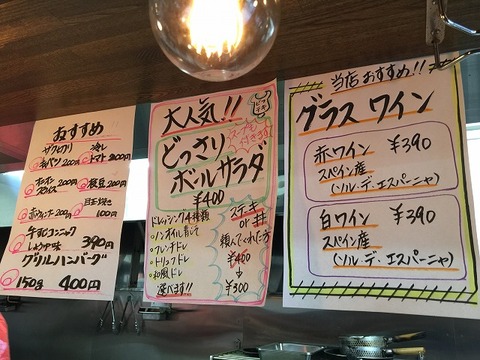 おすすめ
ザクとり 冷し
キャベツ200円 トマト200円
オニオン
スライス 200円 枝豆 200円
赤ウィンナー200円 目玉焼き
100円
牛すじコンニャク
しょうゆ味 390円
グリルハンバーグ
150g 400円
大人気!!
どっさり
ボールサラダ
スープも
付きます!
¥400
ドレッシング4種類
・ノンオイル青じそ
・フレンチドレ
・トリュフドレ
・和風ドレ
選べます!!
ステーキ
or 丼
頼んでくれた方
¥400
↓
¥300
当店おすすめ!!
グラスワイン
赤ワイン ¥390
スペイン産
(ソル・デ・エスパーニャ)
白ワイン ¥390
スペイン産
(ソル・デ・エスパーニャ)